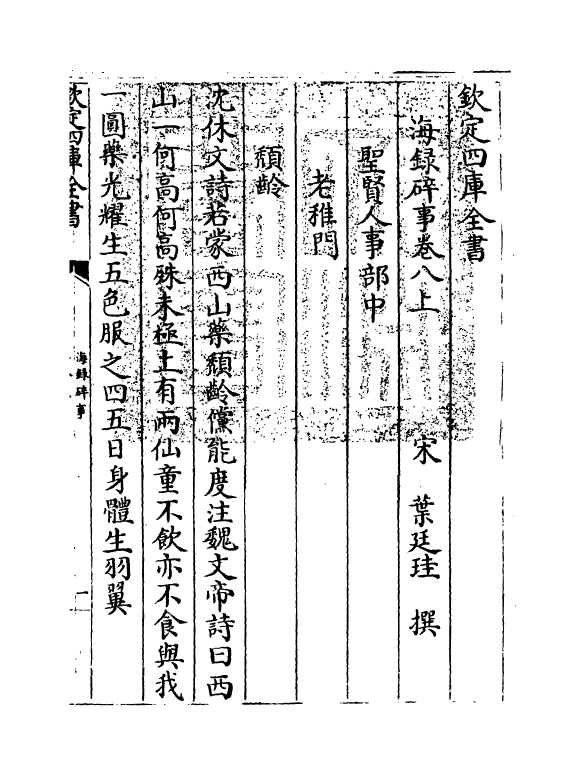 欽定四庫全書
海録碎事卷八上　宋　葉廷珪　撰
聖賢人事部中
老稚門
頽齡
沈休文詩若蒙西山藥頽齡儻能度注魏文帝詩曰西
山一何高何高殊未極上有兩仙童不飲亦不食與我
一圓藥光耀生五色服之四五日身體生羽翼
欽定四庫全書
海録碎事
一